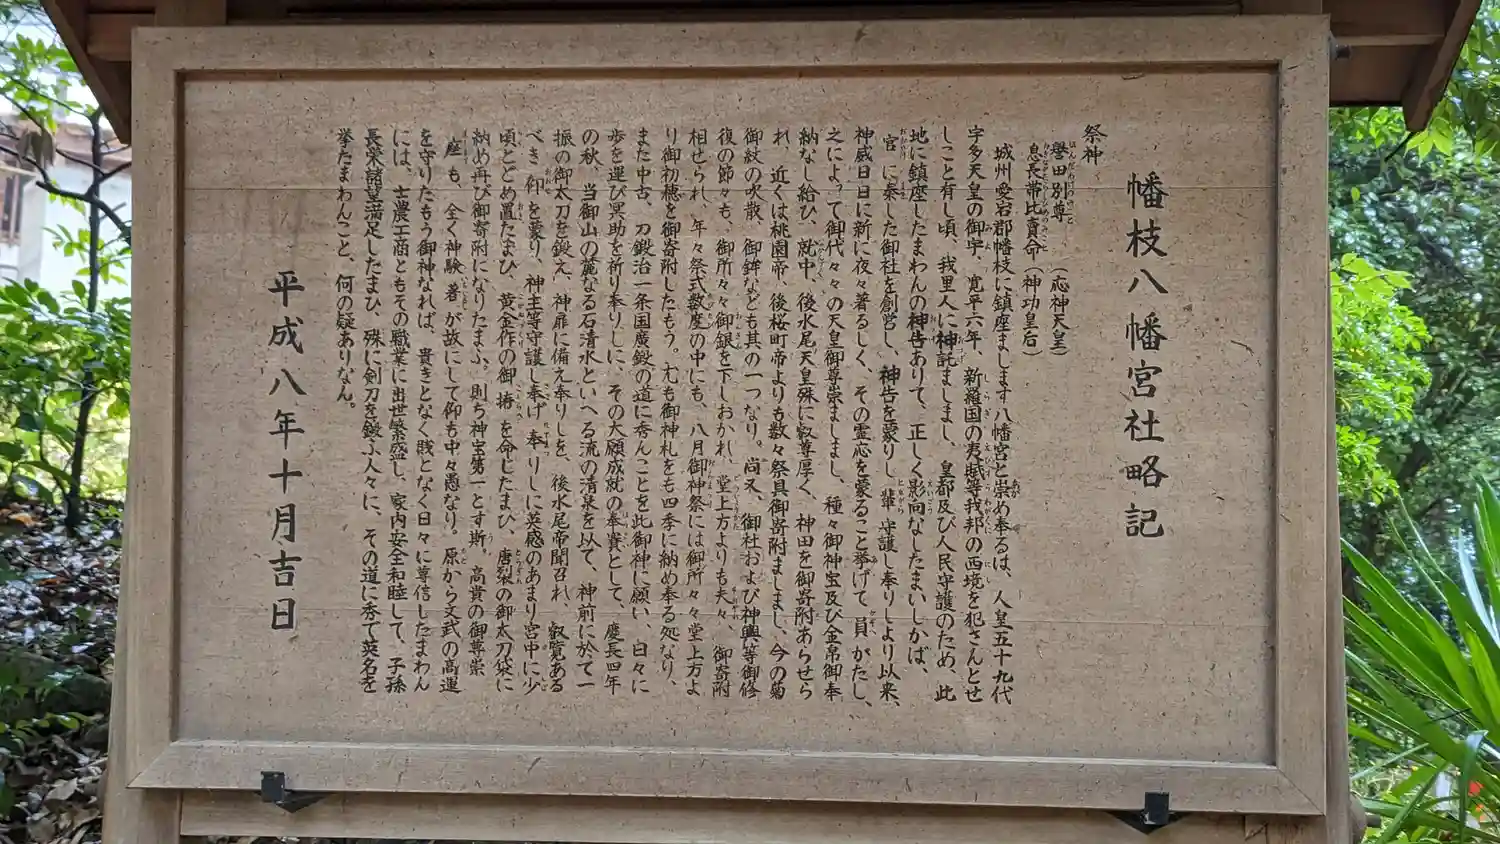 幡枝八幡宮社略記
祭神
誉田別尊（応神天皇）
息長帯比賣命（神功皇后）
城州愛宕郡幡枝に鎮座まします八幡宮と崇め奉るは、人皇五十九代
宇多天皇の御宇、寛平六年、新羅国の夷賊等我邦の西境を犯さんとせ
しこと有し頃、我里人に神託ましまし、皇都及び人民守護のため、此
地に鎮座したまわんの神告ありて、正しく影向なしたまいしかば、
官に奏した御社を創営し、神告を蒙りし輩守護し奉りしより以来、
神威日日に新に夜々著るしく、その霊応を蒙ること挙げて員がたし、
之によって御代々々の天皇御尊崇ましまし、種々御神宝及び金帛御奉
納なし給ひ、就中、後水尾天皇殊に叡尊厚く、神田を御寄附あらせら
れ、近くは桃園帝、後桜町帝よりも数々祭具御寄附ましまし、今の菊
御紋の吹散、御鉾なども其の一つなり。尚又、御社および神輿等御修
復の節々も、御所々々御銀を下しおかれ、堂上方よりも夫々、御寄附
相せられ、年々祭式数度の中にも、八月御神祭には御所々々堂上方よ
り御初穂を御寄附したもう。尤も御神札をも四季に納め奉る処なり、
また中古、刀鍛治一条国廣鍛の道に秀んことを此御神に願い、日々に
歩を運び冥助を祈り奉りしに、その大願成就の奉賽として、慶長四年
の秋、当御山の麓なる石清水といへる流の清泉を以て、神前に於て一
振の御太刀を鍛え、神扉に備え奉りしを、後水尾帝聞召れ、叡覧ある
べき仰を蒙り、神主等守護し奉げ奉りしに英感のあまり宮中に少
頃とどめ置たまひ、黄金作の御拵を命じたまひ、唐裂の御太刀袋に
納め再び御寄附になりたまふ。則ち神宝第一とす斯。高貴の御尊崇
座も、全く神験著が故にして仰も中々愚なり。原から文武の高運
を守りたもう御神なれば、貴きとなく賎となく日々に尊信したまわん
には、士農工商ともその職業に出世繁盛し、家内安全和睦して、子孫
長栄諸望満足したまひ、殊に剣刀を鍛ふ人々に、その道に秀て英名を
挙たまわんこと、何の疑ありなん。
平成八年十月吉日